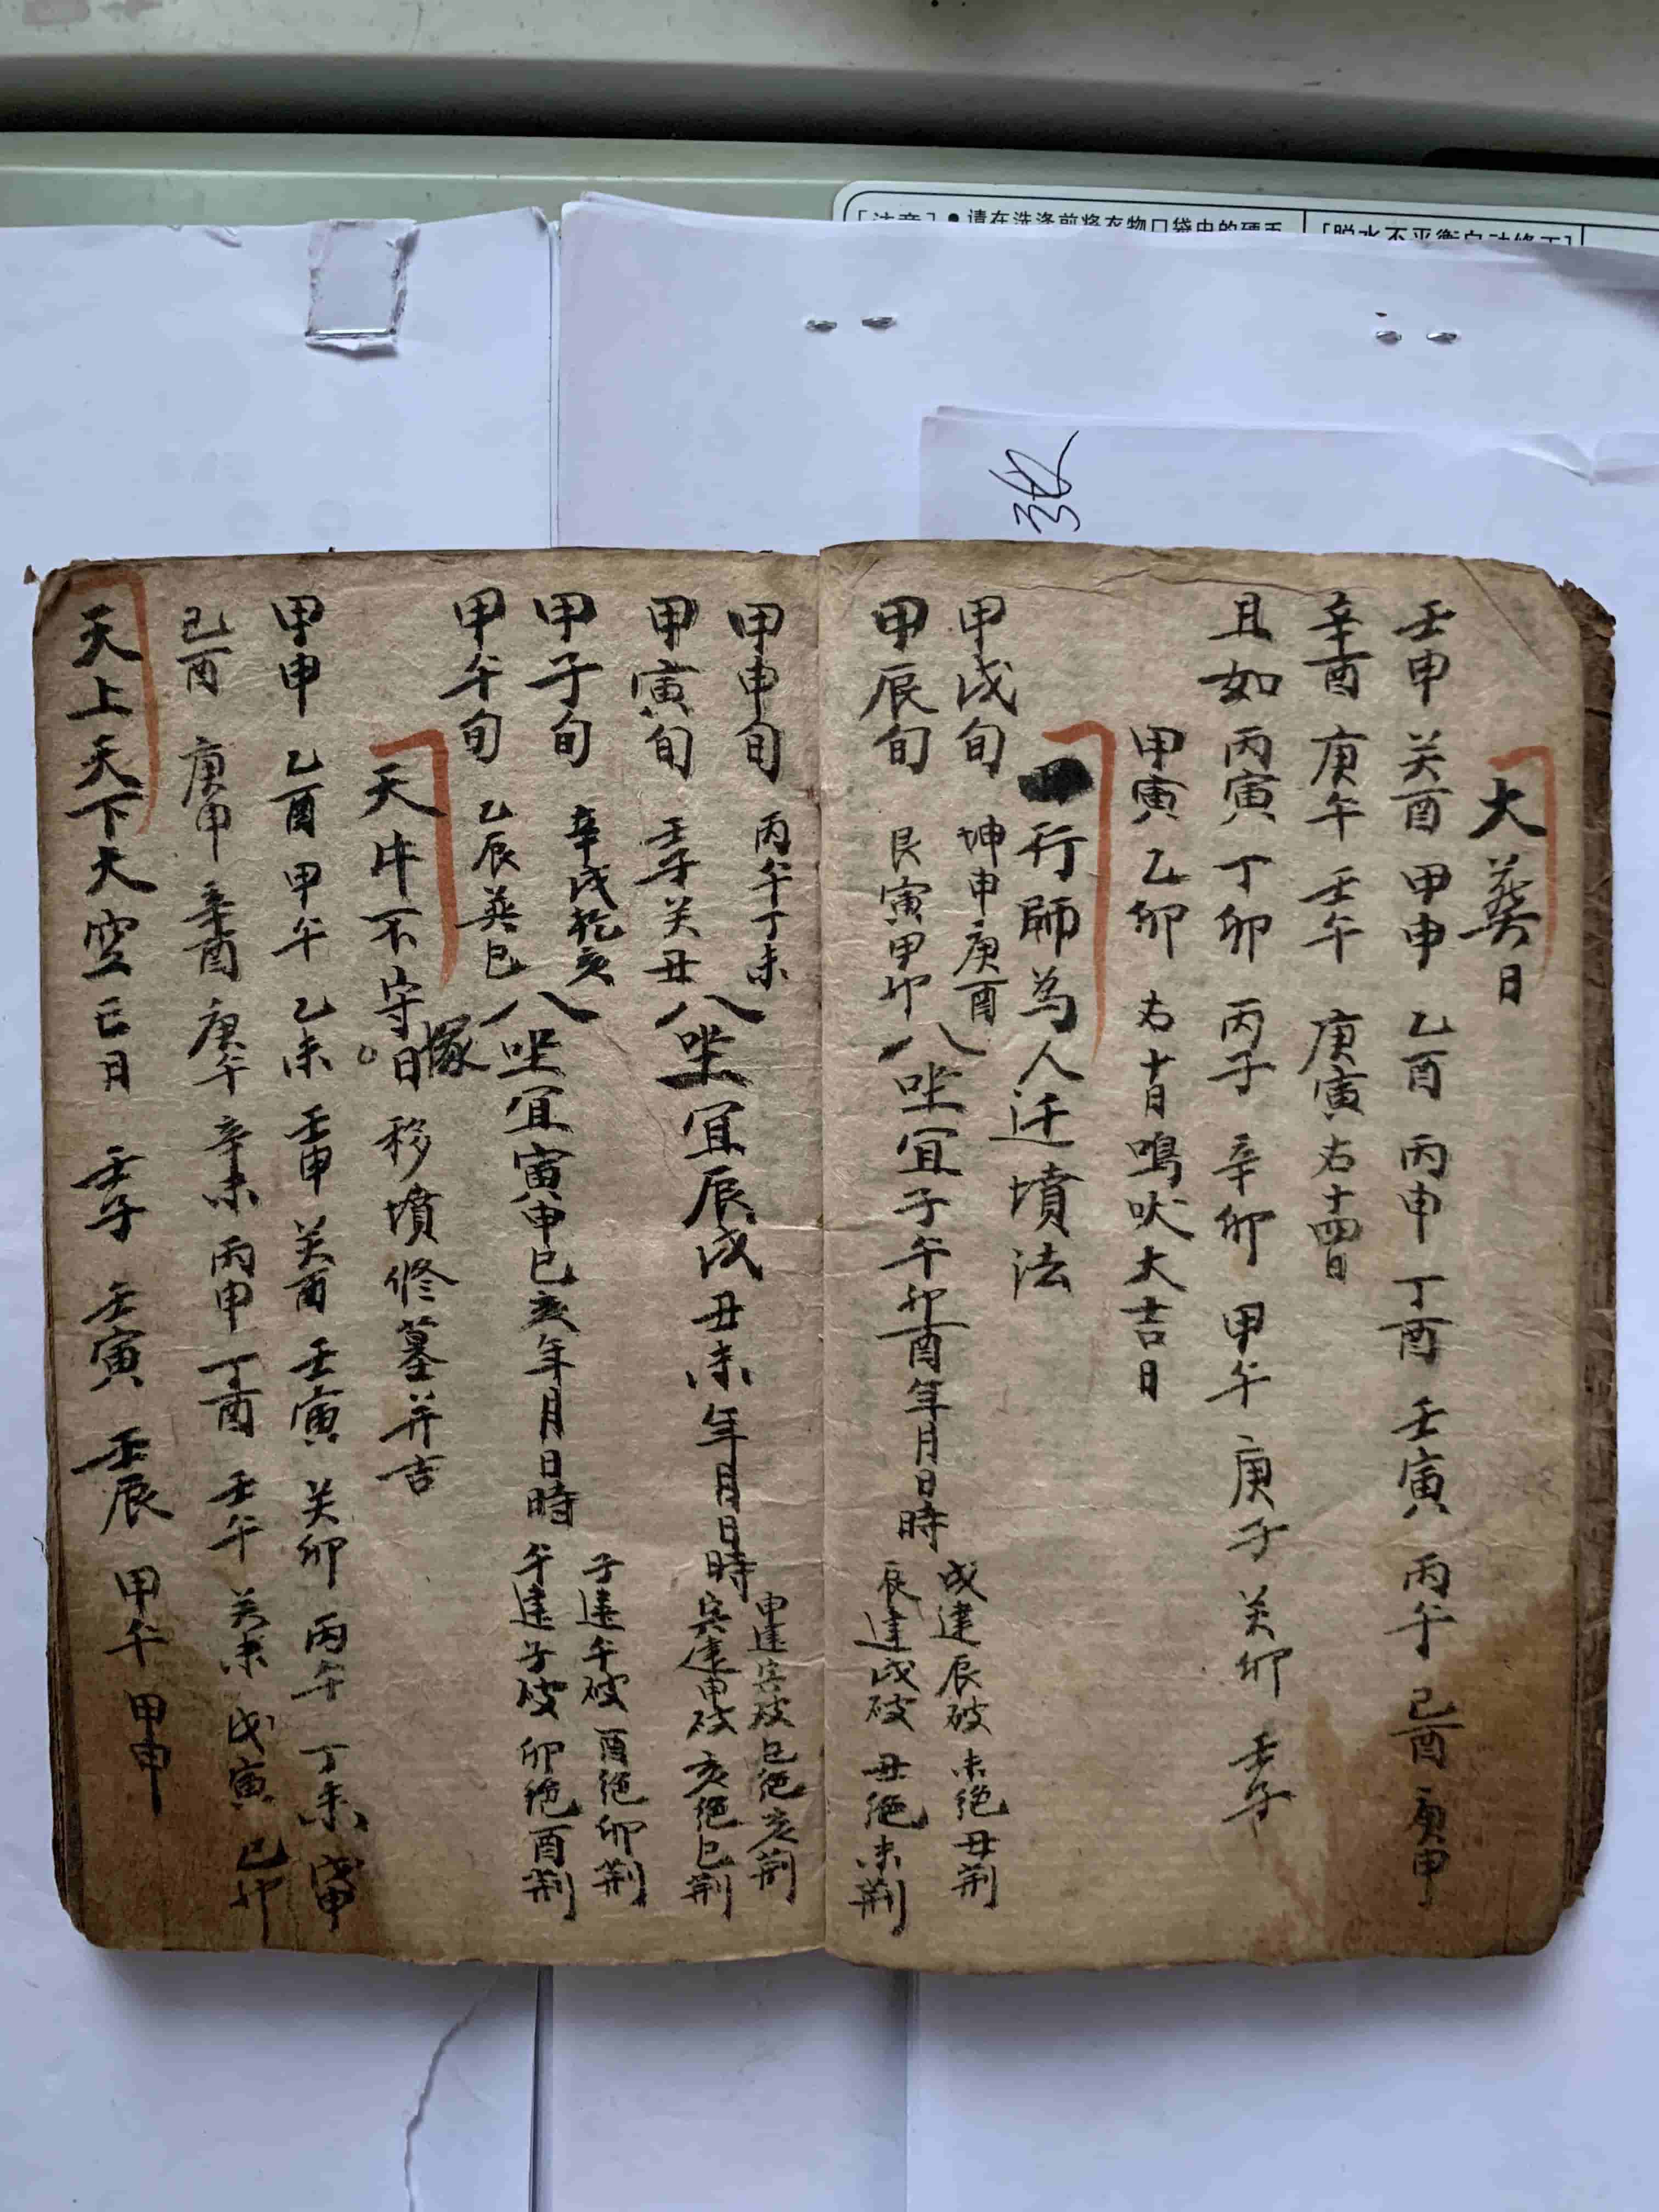 [注意] ●请在洗涤前将衣物口袋中的硬币
[脱水不平衡自动修正]
大葬日
壬申 癸酉 甲申 乙酉 丙申 丁酉 壬寅 丙午 己酉 庚申
辛酉 庚午 壬午 庚寅 右十四日
且如丙寅 丁卯 丙子 辛卯 甲午 庚子 癸卯 壬子
甲寅 乙卯 右十日鳴吠大吉日
一行師為人迁墳法
甲戌旬 坤申庚酉
甲辰旬 艮寅甲卯
八坐宜子午卯酉年月日時
戌建辰破 未绝丑荆
辰建戌破 丑绝未荆
甲申旬 丙午丁未
甲寅旬 壬子癸丑
八坐宜辰戌丑未年月日時
申建寅破 巳绝亥荆
寅建申破 亥绝巳荆
甲子旬 辛戌乾亥
甲午旬 乙辰巽巳
八坐宜寅申巳亥年月日時
子建午破 酉绝卯荆
午建子破 卯绝酉荆
天牛不守塚日 移墳修墓并吉
甲申 乙酉 甲午 乙未 壬申 癸酉 壬寅 癸卯 丙午 丁未 戊申
己酉 庚申 辛酉 庚午 辛未 丙申 丁酉 壬午 癸未 戊寅 己卯
天上天下大空亡日 壬子 壬寅 壬辰 甲午 甲申